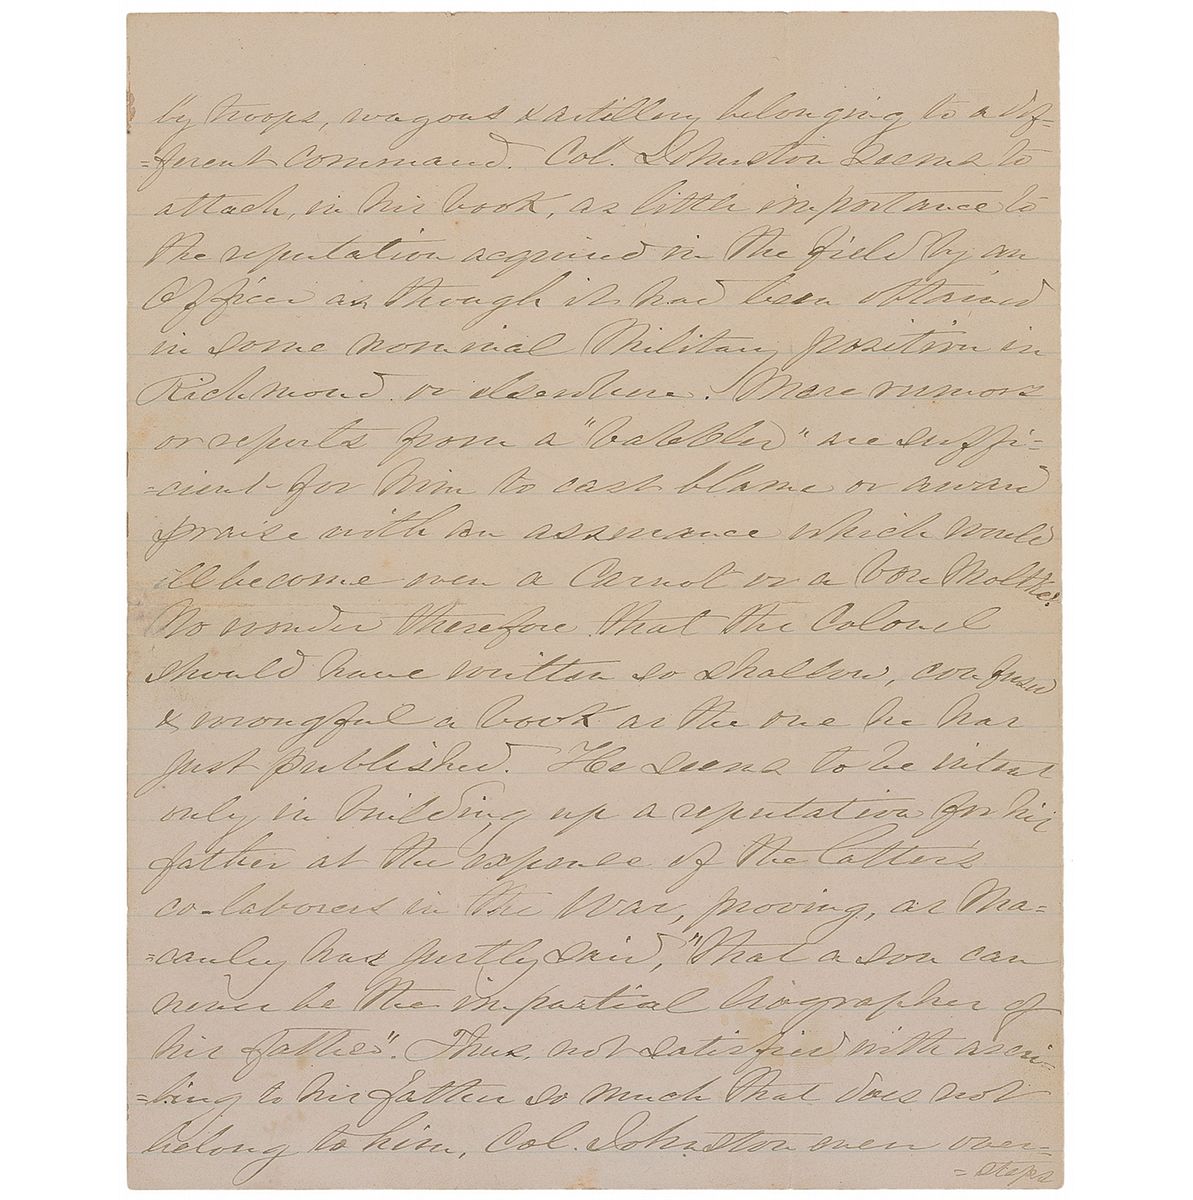 by troops, wagons & artillery belonging to a dif-
=ferent command. Col. Johnston seems to
attach, in his book, as little importance to
the reputation acquired in the field by an
Officer as though it had been obtained
in some nominal Military position in
Richmond or elsewhere. Mere rumors
or reports from a "babbler" are suffi-
=cient for him to cast blame or award
praise with an assurance which would
ill become even a Carnot or a Von Moltke.
No wonder therefore that the Colonel
should have written so shallow, confused
& wrongful a book as the one he has
just published. He seems to be intent
only in building up a reputation for his
father at the expense of the latter's
co-laborers in the War, proving, as Ma-
=cauley has justly said, "that a son can
never be the impartial biographer of
his father". Thus, not satisfied with ascri-
=bing to his father so much that does not
belong to him, Col. Johnston even over-
=steps